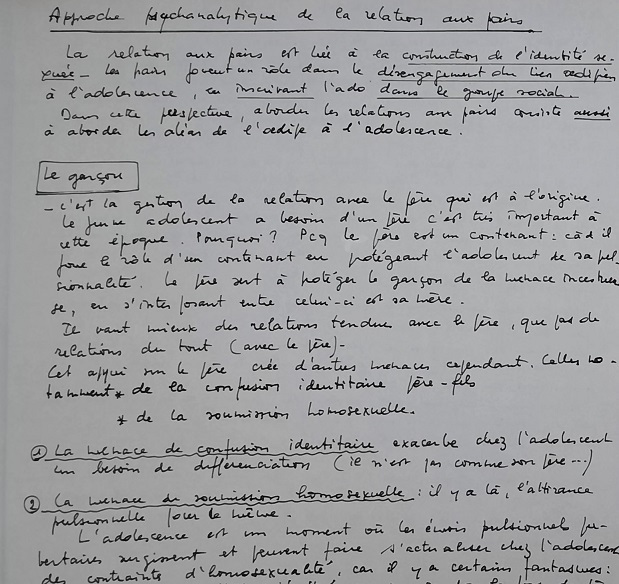 Approche psychanalytique de la relation aux pairs.
La relation aux pairs est liée à la construction de l'identité se-
xuée - les pairs jouent un rôle dans le désengagement du lien oedipien
à l'adolescence, en inscrivant l'ado dans le groupe social.
Dans cette perspective, aborder les relations aux pairs consiste aussi
à aborder les aléas de l'oedipe à l'adolescence.
Le garçon
- c'est la gestion de la relation avec le père qui est à l'origine.
Le jeune adolescent a besoin d'un père c'est très important à
cette époque. Pourquoi? Pcq le père est un contenant : càd il
joue le rôle d'un contenant en protégeant l'adolescent de sa pul-
sionnalité. Le père sert à protéger le garçon de la menace incestueu-
se, en s'interposant entre celui-ci et sa mère.
Il vaut mieux des relations tendues avec le père, que pas de
relations du tout (avec le père)-
Cet appui sur le père crée d'autres menaces cependant. Celles no-
tamment * de la confusion identitaire père-fils
* de la soumission homosexuelle.
① La menace de confusion identitaire exacerbe chez l'adolescent
un besoin de différenciation (ie n'est pas comme son père...)
② La menace de soumission homosexuelle : il y a là, l'attirance
pulsionnelle pour le même.
L'adolescence est un moment où les émois pulsionnels pu-
bertaires surgissent et peuvent faire s'actualiser chez l'adolescent
des contraintes d'homosexualité, car il y a certains fantasmes :